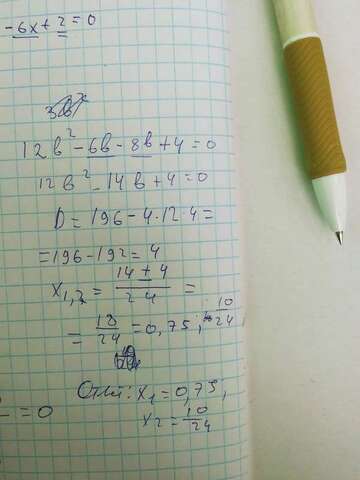 -6x+2=0
12b²-6b-8b+4=0
12b²-14b+4=0
D=196-4·12·4=
=196-192=4
x₁,₂=(14±4)/24=
=18/24=0,75; 10/24
Ответ: x₁=0,75;
x₂=10/24
=0